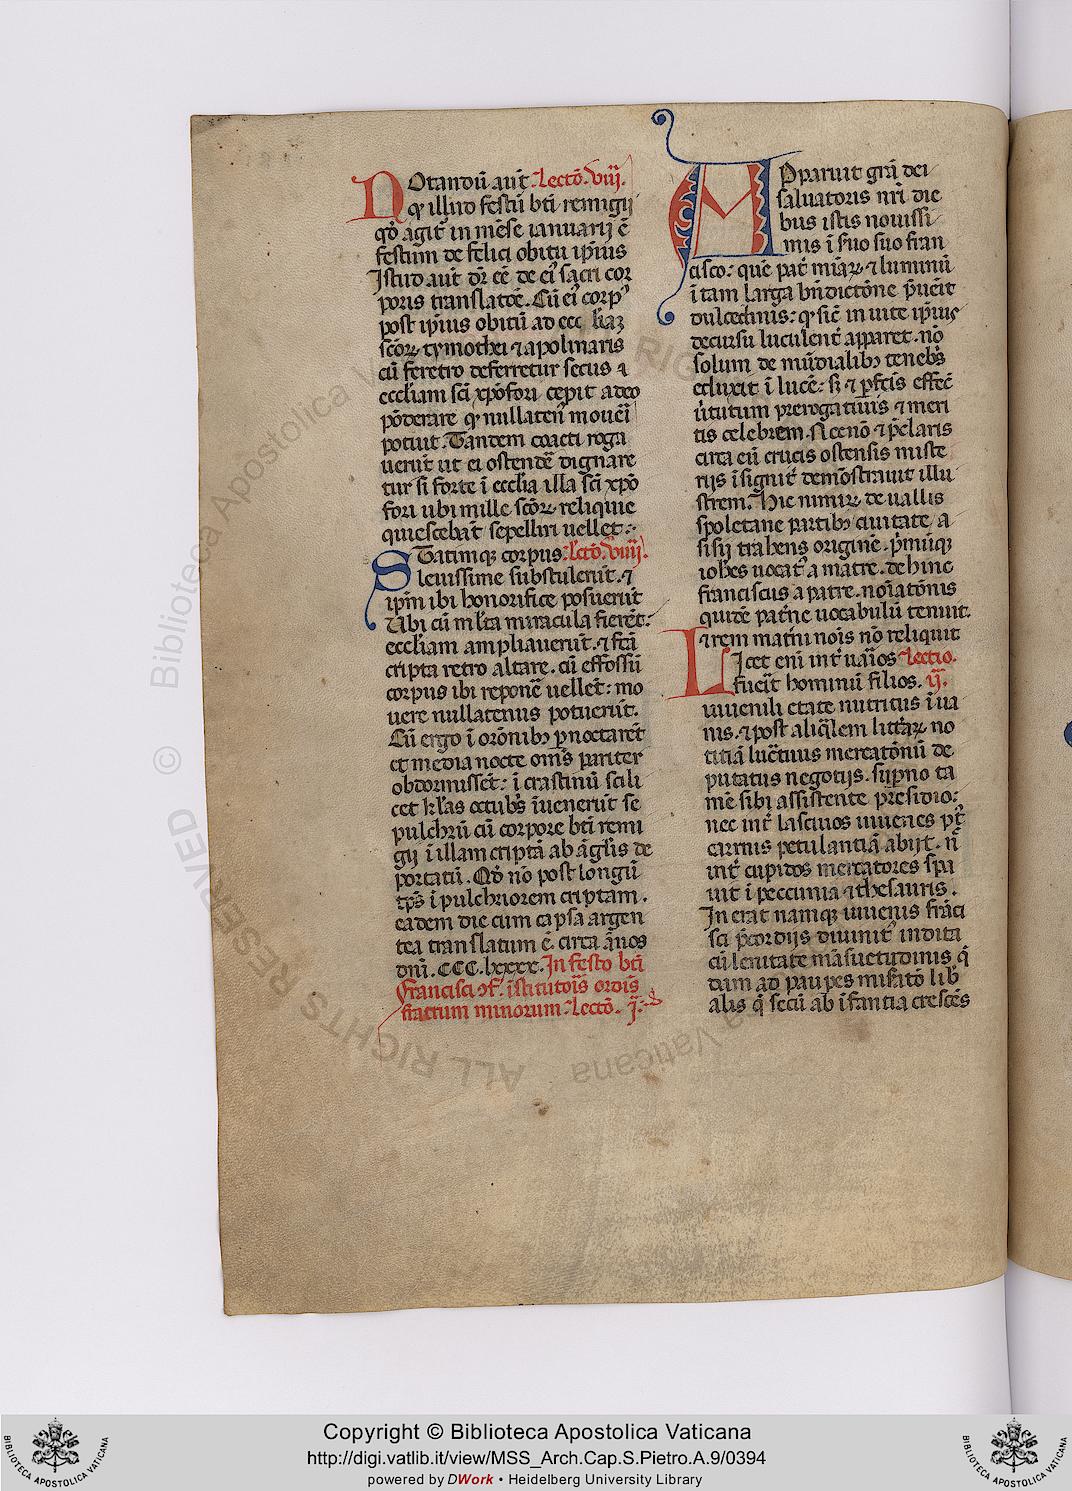 NOtandū aūt. Lectō. viij.
qͥ illud festū btī remigij
qd̄ agit᷑ in mēse ianuarij ē
festum de felici obitu ip̄ius
Istud aūt dr̄ eē de eiꝰ sacri cor
poris translatōe. Cū eiꝰ corpꝰ
post ip̄ius obitū ad ecc̄liaꝫ
sc̄oꝝ tymothei ⁊ apolinaris
cū feretro deferretur secus ⁊
eccl̄iam sc̄i xp̄ofori cepit adeo
pōderare qͥ nullatenꝰ mouēi
potuit. Tandem coacti roga
uerūt ut ei ostendēꝰ dignare
tur si forte ī eccl̄ia illa sc̄i xp̄o
fori ubi mille sc̄oꝝ reliquie
quiescebāt sepelliri uellet.
STatimqꝫ corpus. lctō. viiij.
leuissime substulerūt. ⁊
ip̄m ibi honorifice posuerūt
Ubi cū ml̄ta miracula fierēt.
eccl̄iam ampliauerūt. ⁊ fc̄ā
cripta retro altare. cū effossū
corpus ibi reponeꝰ uellēt: mo
uere nullatenus potuerūt.
Cū ergo ī orōnibꝫ ꝑnoctarēt
et media nocte om̄s pariter
obdormissēt: ī crastinū scili
cet kl̄as octub᷑s īuenerūt se
pulchrū cū corpore btī remi
gij ī illam criptā ab āgl̄is de
portatū. Qd̄ nō post longū
tp̄s ī pulchriorem criptam.
eadem die cum capsa argen
tea translatum ē. circa ānos
dnī. CCC. lxxxx. In festo btī
Francisci ɔf. īstitutoīs ordīs
fratrum minorum. Lectō. j.
APparuit grā dei
saluatoris nr̄i die
bus istis nouissi
mis ī suo suo fran
cisco: quē pat᷑ mīaꝝ ⁊ luminū
ī tam larga bn̄dictōne p̄uēit
dulcedinis: qͥ sic̄ in uite ip̄ius
decursu luculent᷑ apparet. nō
solum de mūdialibꝫ teneb᷑s
eduxit ī lucē: sꝫ ⁊ ꝑfc̄is effec̄
ūtutum prerogatiuis ⁊ meri
tis celebrem. Necnō ⁊ p̄claris
circa eū crucis ostensis miste
rijs īsignit᷑ demōstrauit illu
strem. Hic nimiꝝ de uallis
spoletane partibꝫ ciuitate a
sisij trahens originē. p̄miqꝫ
ioh̄es uocat᷑ a matre. dehinc
franciscus a patre. noīatōnis
quidē pat᷑ne uocabulū tenuit.
⁊ rem mat᷑ni noīs nō reliquit
LIcet eni īt᷑ uāios Lectio.
fueīt hominū filios. ij.
iuuenili etate nutritus ī ua
nis. ⁊ post aliqͣlem litt᷑aꝝ no
titiā luc̄tiuus mercatōnū de
putatus negotijs. suꝑno ta
mē sibi assistente presidio:
nec īt᷑ lasciuos iuuenes pt᷑
carnis petulantiā abijt. n̄
īt᷑ cupidos mercatores spa
uit ī peccunia ⁊ thesauris.
Inerat namqꝫ iuuenis frāci
sci p̄cordijs diuinit᷑ indita
cū lenitate māsuetudinis qͥ
dam ad paupes misatō lib᷑
alis qͥ secū ab īfantia cresces
Copyright © Biblioteca Apostolica Vaticana
http://digi.vatlib.it/view/MSS_Arch.Cap.S.Pietro.A.9/0394
powered by DWork • Heidelberg University Library